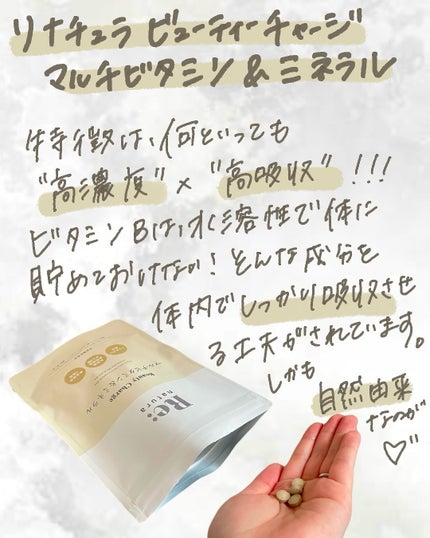 リナチュラ ビューティーチャージ
マルチビタミン&ミネラル
特徴は、何といっても
"高濃度"×"高吸収"!!!
ビタミンBは、水溶性で体に
貯めておけない!そんな成分を
体内でしっかり吸収させ
る工夫がされています。
しかも
自然由来
なのが
♡"
Re:
Natura
Beauty Charge
マルチビタミン&ミネラル